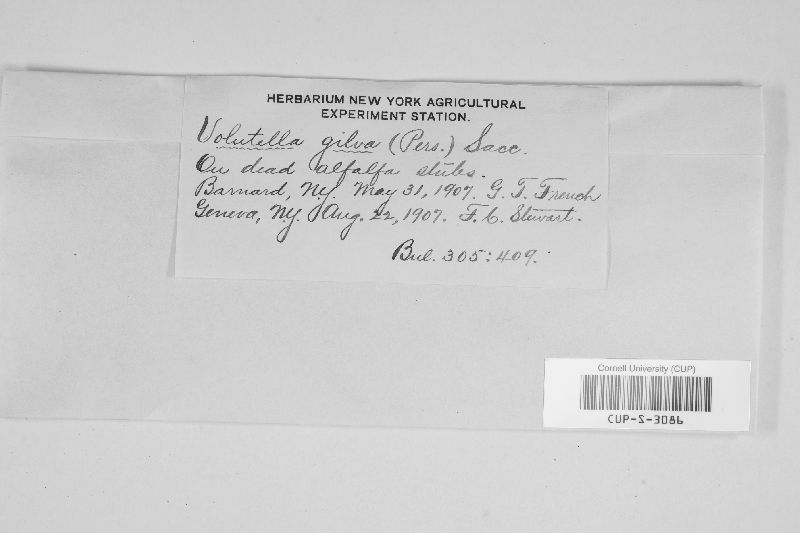 HERBARIUM NEW YORK AGRICULTURAL
EXPERIMENT STATION.
Volutella gilva (Pers.) Sacc.
On dead alfalfa stubs.
Barnard, N.Y. May 31, 1907. G. T. French
Geneva, N.Y. Aug. 22, 1907. F. C. Stewart.
Bul. 305:409.
Cornell University (CUP)
CUP-S-3086